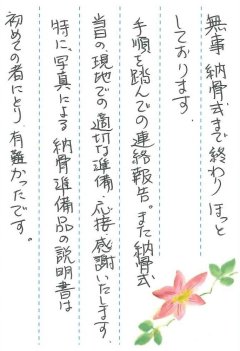 無事 納骨式まで終わり ほっと
しております。
手順を踏んでの連絡報告。また納骨式
当日の、現地での適切な準備、応接、感謝いたします。
特に、写真による 納骨準備品の説明書は
初めての者にとり、有難かったです。